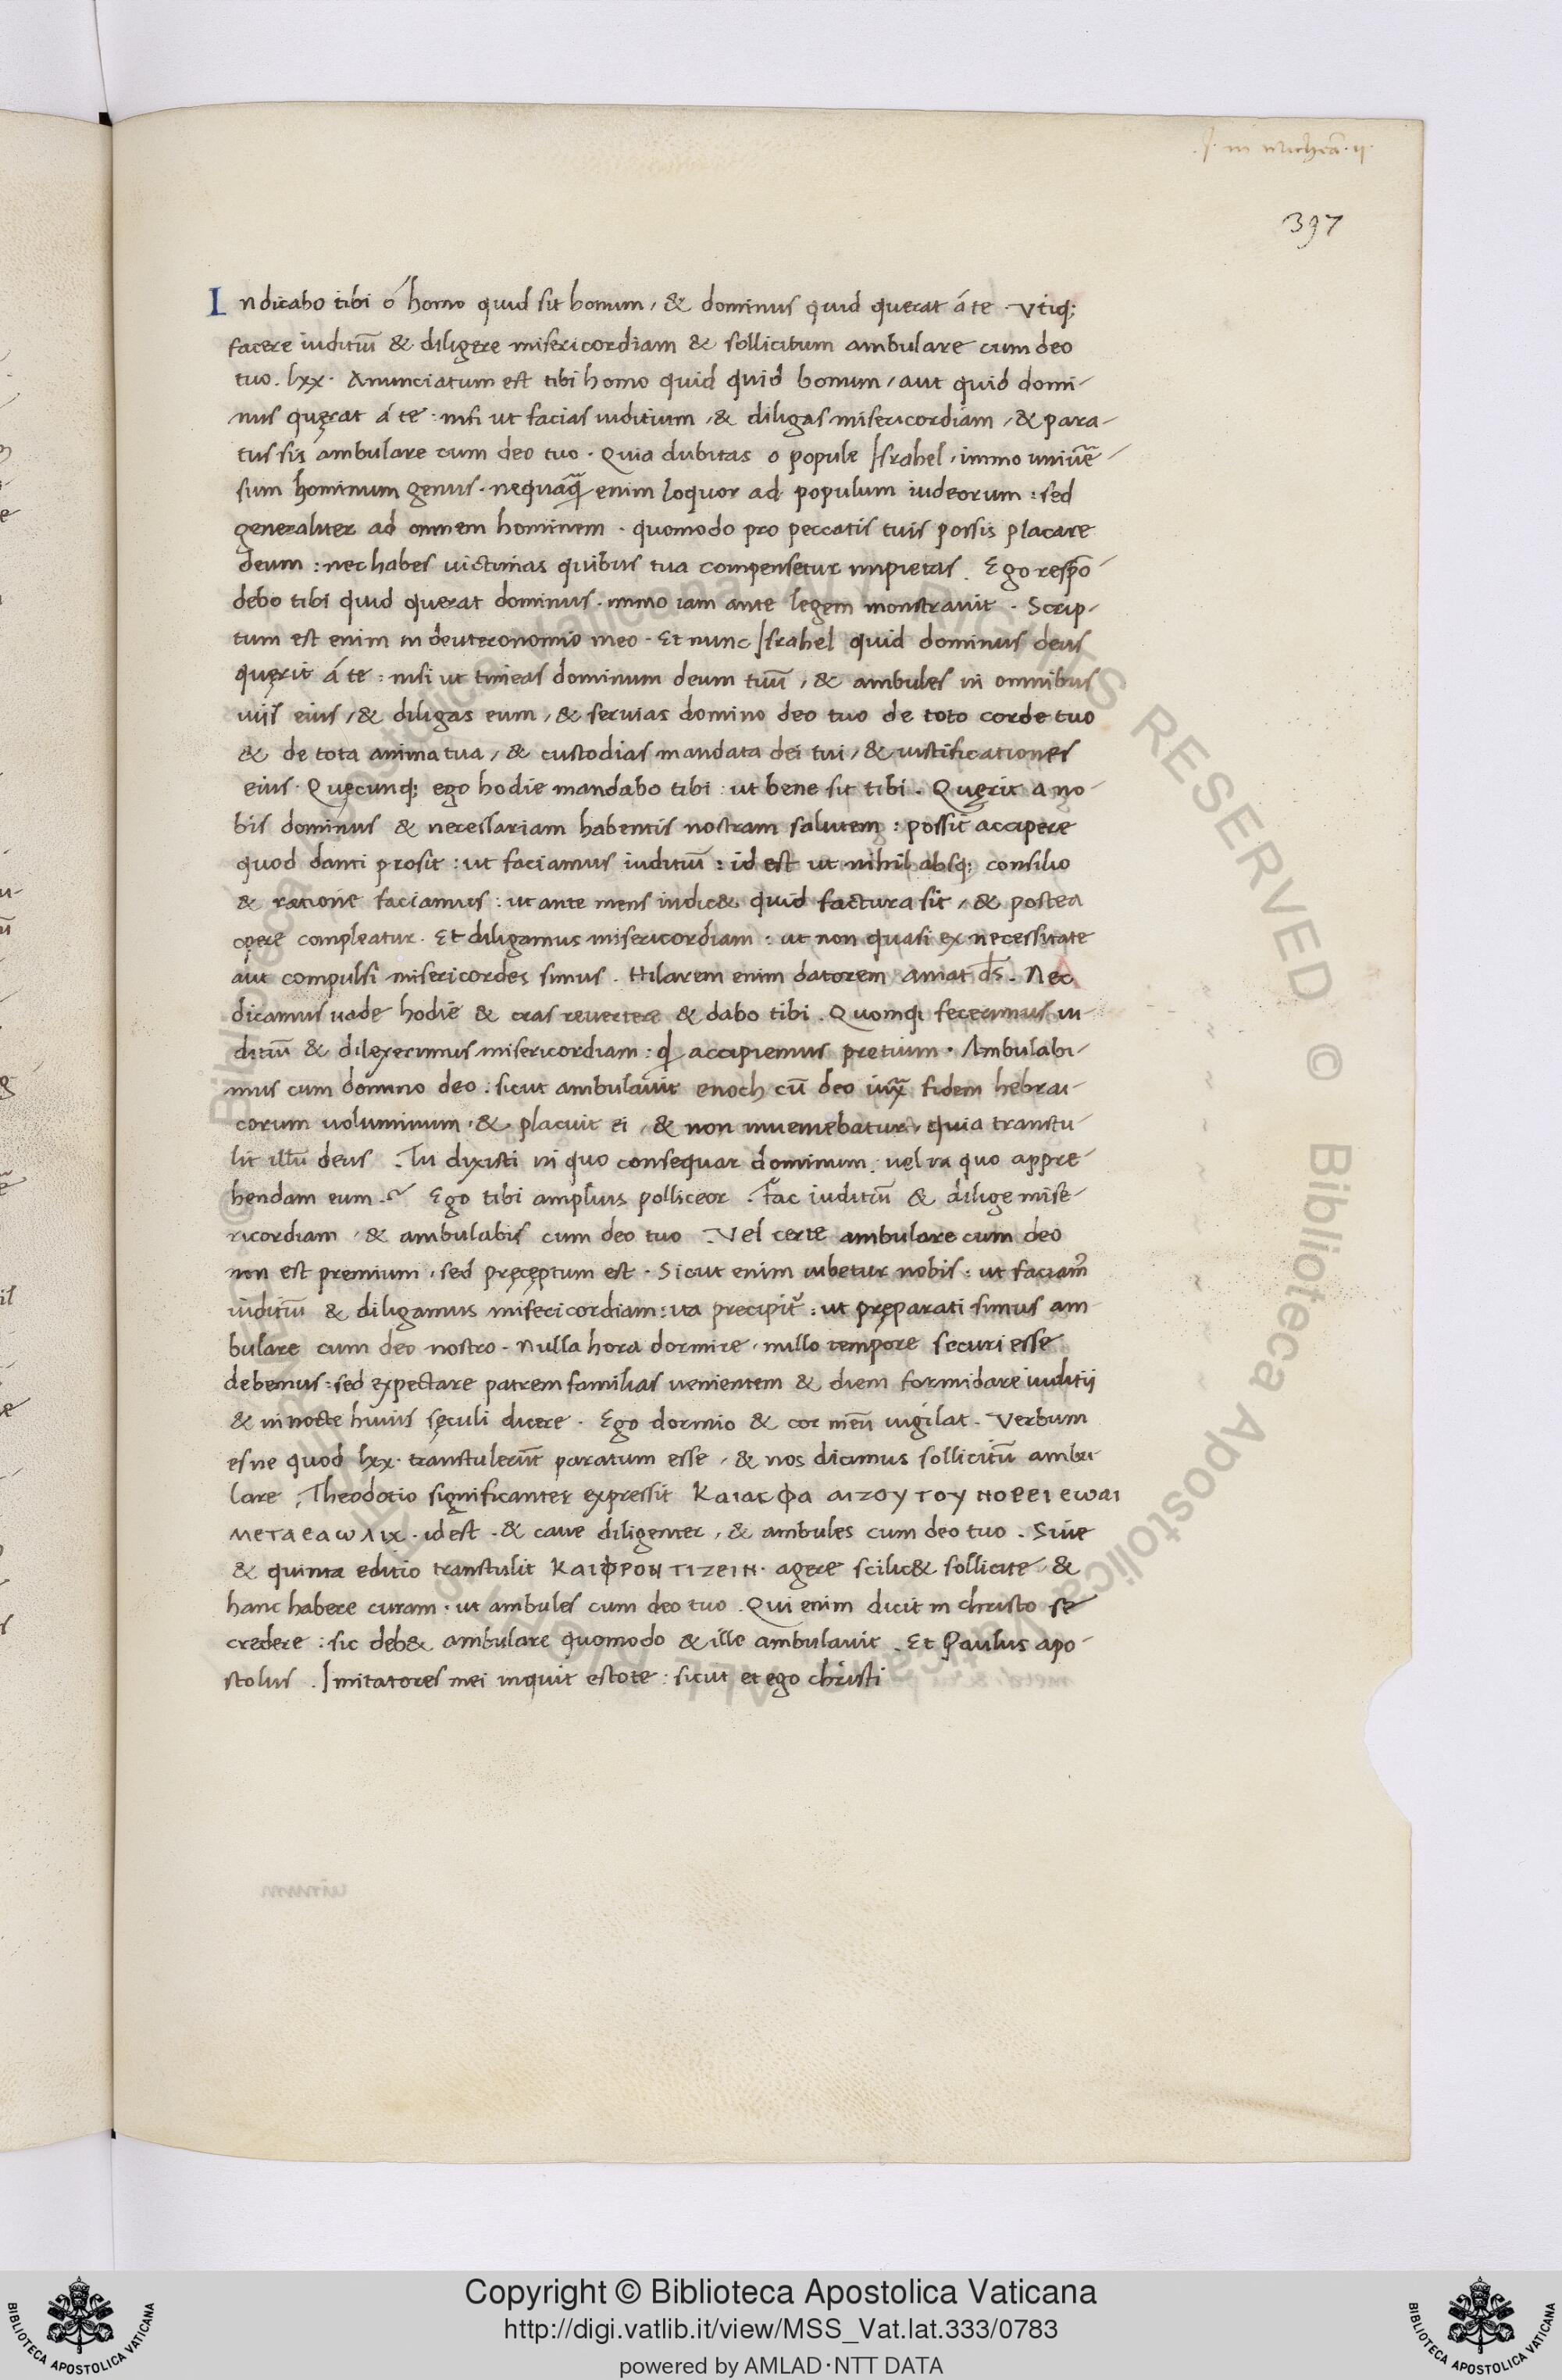 .J. in Micheā. ij.
397
Indicabo tibi ó homo quid sit bonum, & dominus quid querat á te. Vtiq;
facere iuditiū & diligere misericordiam & sollicitum ambulare cum deo
tuo. lxx. Anunciatum est tibi homo quid quid bonum, aut quid domi-
nus quęrat á te: nisi ut facias iuditium, & diligas misericordiam, & para-
tus sis ambulare cum deo tuo. Quia dubitas o popule Israhel, immo uniūe-
sum hominum genus. nequaq̄ enim loquor ad populum iudeorum: sed
generaliter ad omnem hominem. quomodo pro peccatis tuis possis placare
deum: nec habes uictimas quibus tua compensetur impietas. Ego respō-
debo tibi quid querat dominus. immo iam ante legem monstrauit. Scrip-
tum est enim in deuteronomio meo. Et nunc Israhel quid dominus deus
quęrit á te: nisi ut timeas dominum deum tuū, & ambules in omnibus
uijs eius, & diligas eum, & seruias domino deo tuo de toto corde tuo
& de tota anima tua, & custodias mandata dei tui, & iustificationes
eius. Quęcunq; ego hodie mandabo tibi: ut bene sit tibi. Quęrit a no-
bis dominus & necessariam habentis nostram salutem: possit accipere
quod danti prosit: ut faciamus iuditiū: id est ut nihil absq; consilio
& ratione faciamus: ut ante mens iudic& quid factura sit, & postea
opere compleatur. Et diligamus misericordiam: ut non quasi ex necessitate
aut compulsi misericordes simus. Hilarem enim datorem amat ds̄. Nec
dicamus uade hodie & cras reuertere & dabo tibi. Quomq; fecerimus iu-
ditiū & dilexerimus misericordiam: qđ accipiemus pretium. Ambulabi-
mus cum domino deo: sicut ambulauit enoch cū deo iux̄ fidem hebrai-
corum uoluminum, & placuit ei, & non inueniebatur, quia transtu-
lit illū deus. Tu dixisti in quo consequar dominum: uel in quo appre-
hendam eum. Ego tibi amplius polliceor. Fac iuditiū & dilige mise-
ricordiam, & ambulabis cum deo tuo. Vel certe ambulare cum deo
non est premium, sed pręcęptum est. Sicut enim iubetur nobis: ut faciam9
iuditiū & diligamus misericordiam: ita precipit̄: ut pręparati simus am-
bulare cum deo nostro. Nulla hora dormire, nullo tempore securi esse
debemus: sed expectare patrem familias uenientem & diem formidare iuditij
& in nocte huius sęculi dicere. Ego dormio & cor meū uigilat. Verbum
esne quod lxx. transtulerūt paratum esse, & nos dicimus sollicitū ambu-
lare, Theodotio significanter expressit ΚαιαϲΦα αιζου του ποΡεειεωαι
μεταεαωλιχ. id est. & caue diligenter, & ambules cum deo tuo. Siue
& quinta editio transtulit ΚαιφΡοΝΤΙΖΕΙΝ. agere scilic& sollicite, &
hanc habere curam. ut ambules cum deo tuo. Qui enim dicit in christo se
credere: sic deb& ambulare quomodo & ille ambulauit. Et Paulus apo-
stolus. Imitatores mei inquit estote: sicut et ego christi
Copyright © Biblioteca Apostolica Vaticana
http://digi.vatlib.it/view/MSS_Vat.lat.333/0783
powered by AMLAD·NTT DATA